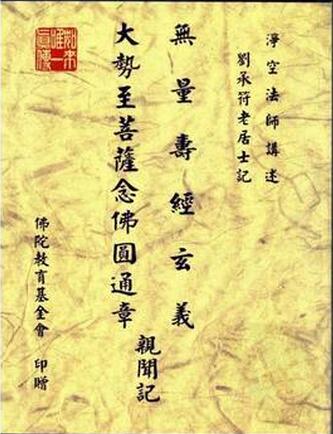 淨空法師講述
劉承符老居士記
無量壽經玄義
大勢至菩薩念佛圓通章
親聞記
佛陀教育基金會 印贈
如來
唯一
真傳